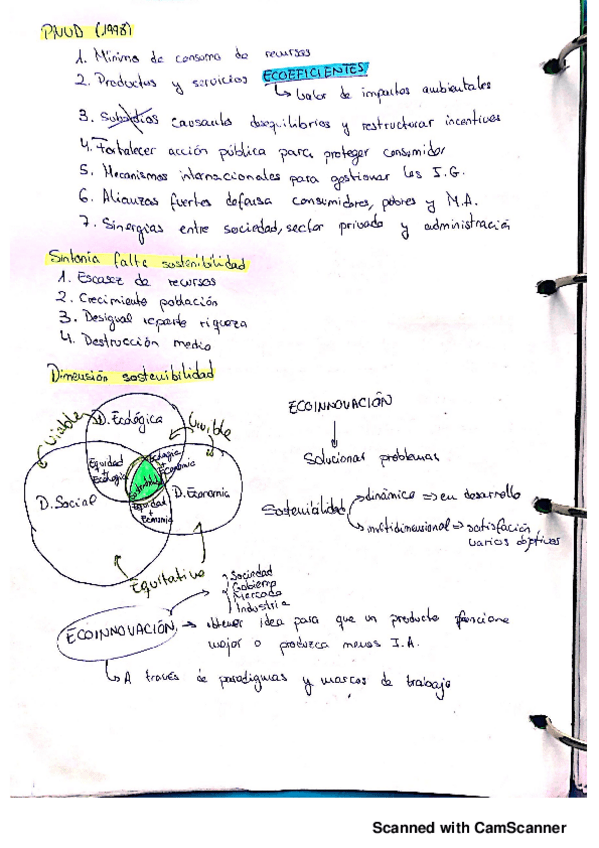 PNUD (1998)
1. Mínimo de consumo de recursos
2. Productos y servicios ECOEFICIENTES
↳ valor de impactos ambientales
3. Subsidios causants desequilibrios y restructurar incentives
4. Fortalecer acción pública para proteger consumidor
5. Mecanismos internacionales para gestionar los I.G.
6. Alianzas fuertes defensa consumidores, pobres y M.A.
7. Sinergias entre sociedad, sector privado y administración
Sintonía falta sostenibilidad
1. Escasez de recursos
2. Crecimiento población
3. Desigual reparte riqueza
4. Destrucción medio
Dimensión sostenibilidad
D. Ecológica
Viable
Vivible
Equidad + Ecología
Ecología + Economía
Sostenible
D. Social
D. Economía
Equidad + Economía
Equitativo
ECOINNOVACIÓN
↓
Solucionar problemas
Sostenibilidad
dinámica => en desarrollo
multidimensional => satisfacción
varios objetivos
Sociedad
Gobierno
Mercado
Industria
ECOINNOVACIÓN → obtener idea para que un producto funcione
mejor o produzca menos I.A.
↳ A través de paradigmas y marcos de trabajo
Scanned with CamScanner